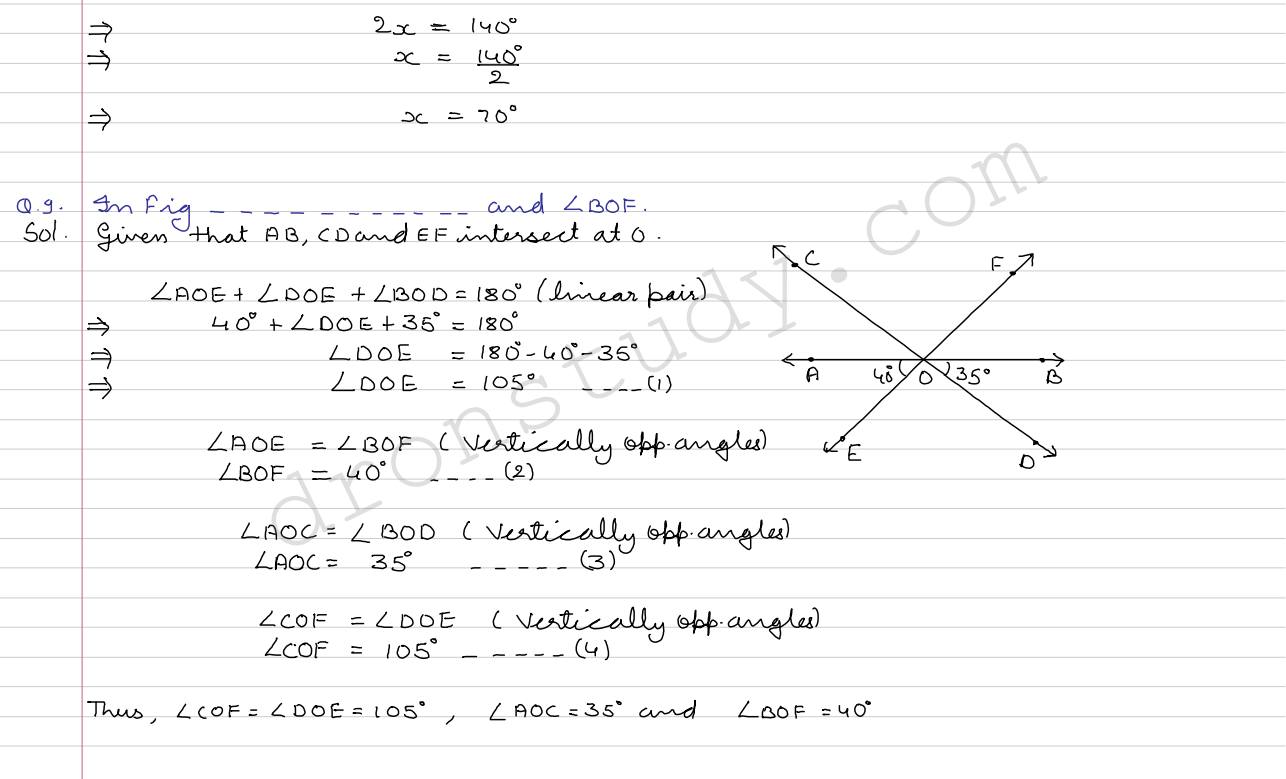 ⇒ 2x = 140°
⇒ x = 140°/2
⇒ x = 70°
Q.9. In Fig _ _ _ _ _ _ _ _ _ _ _ and ∠BOF.
Sol. Given that AB, CD and EF intersect at O.
∠AOE + ∠DOE + ∠BOD = 180° (linear pair)
⇒ 40° + ∠DOE + 35° = 180°
⇒ ∠DOE = 180° - 40° - 35°
⇒ ∠DOE = 105° _ _ _ _ (1)
∠AOE = ∠BOF ( Vertically opp. angles)
∠BOF = 40° _ _ _ _ (2)
∠AOC = ∠BOD ( Vertically opp. angles)
∠AOC = 35° _ _ _ _ _ (3)
∠COF = ∠DOE ( Vertically opp. angles)
∠COF = 105° _ _ _ _ _ (4)
Thus, ∠COF = ∠DOE = 105° , ∠AOC = 35° and ∠BOF = 40°
C F
A 40° O 35° B
E D
dronstudy.com